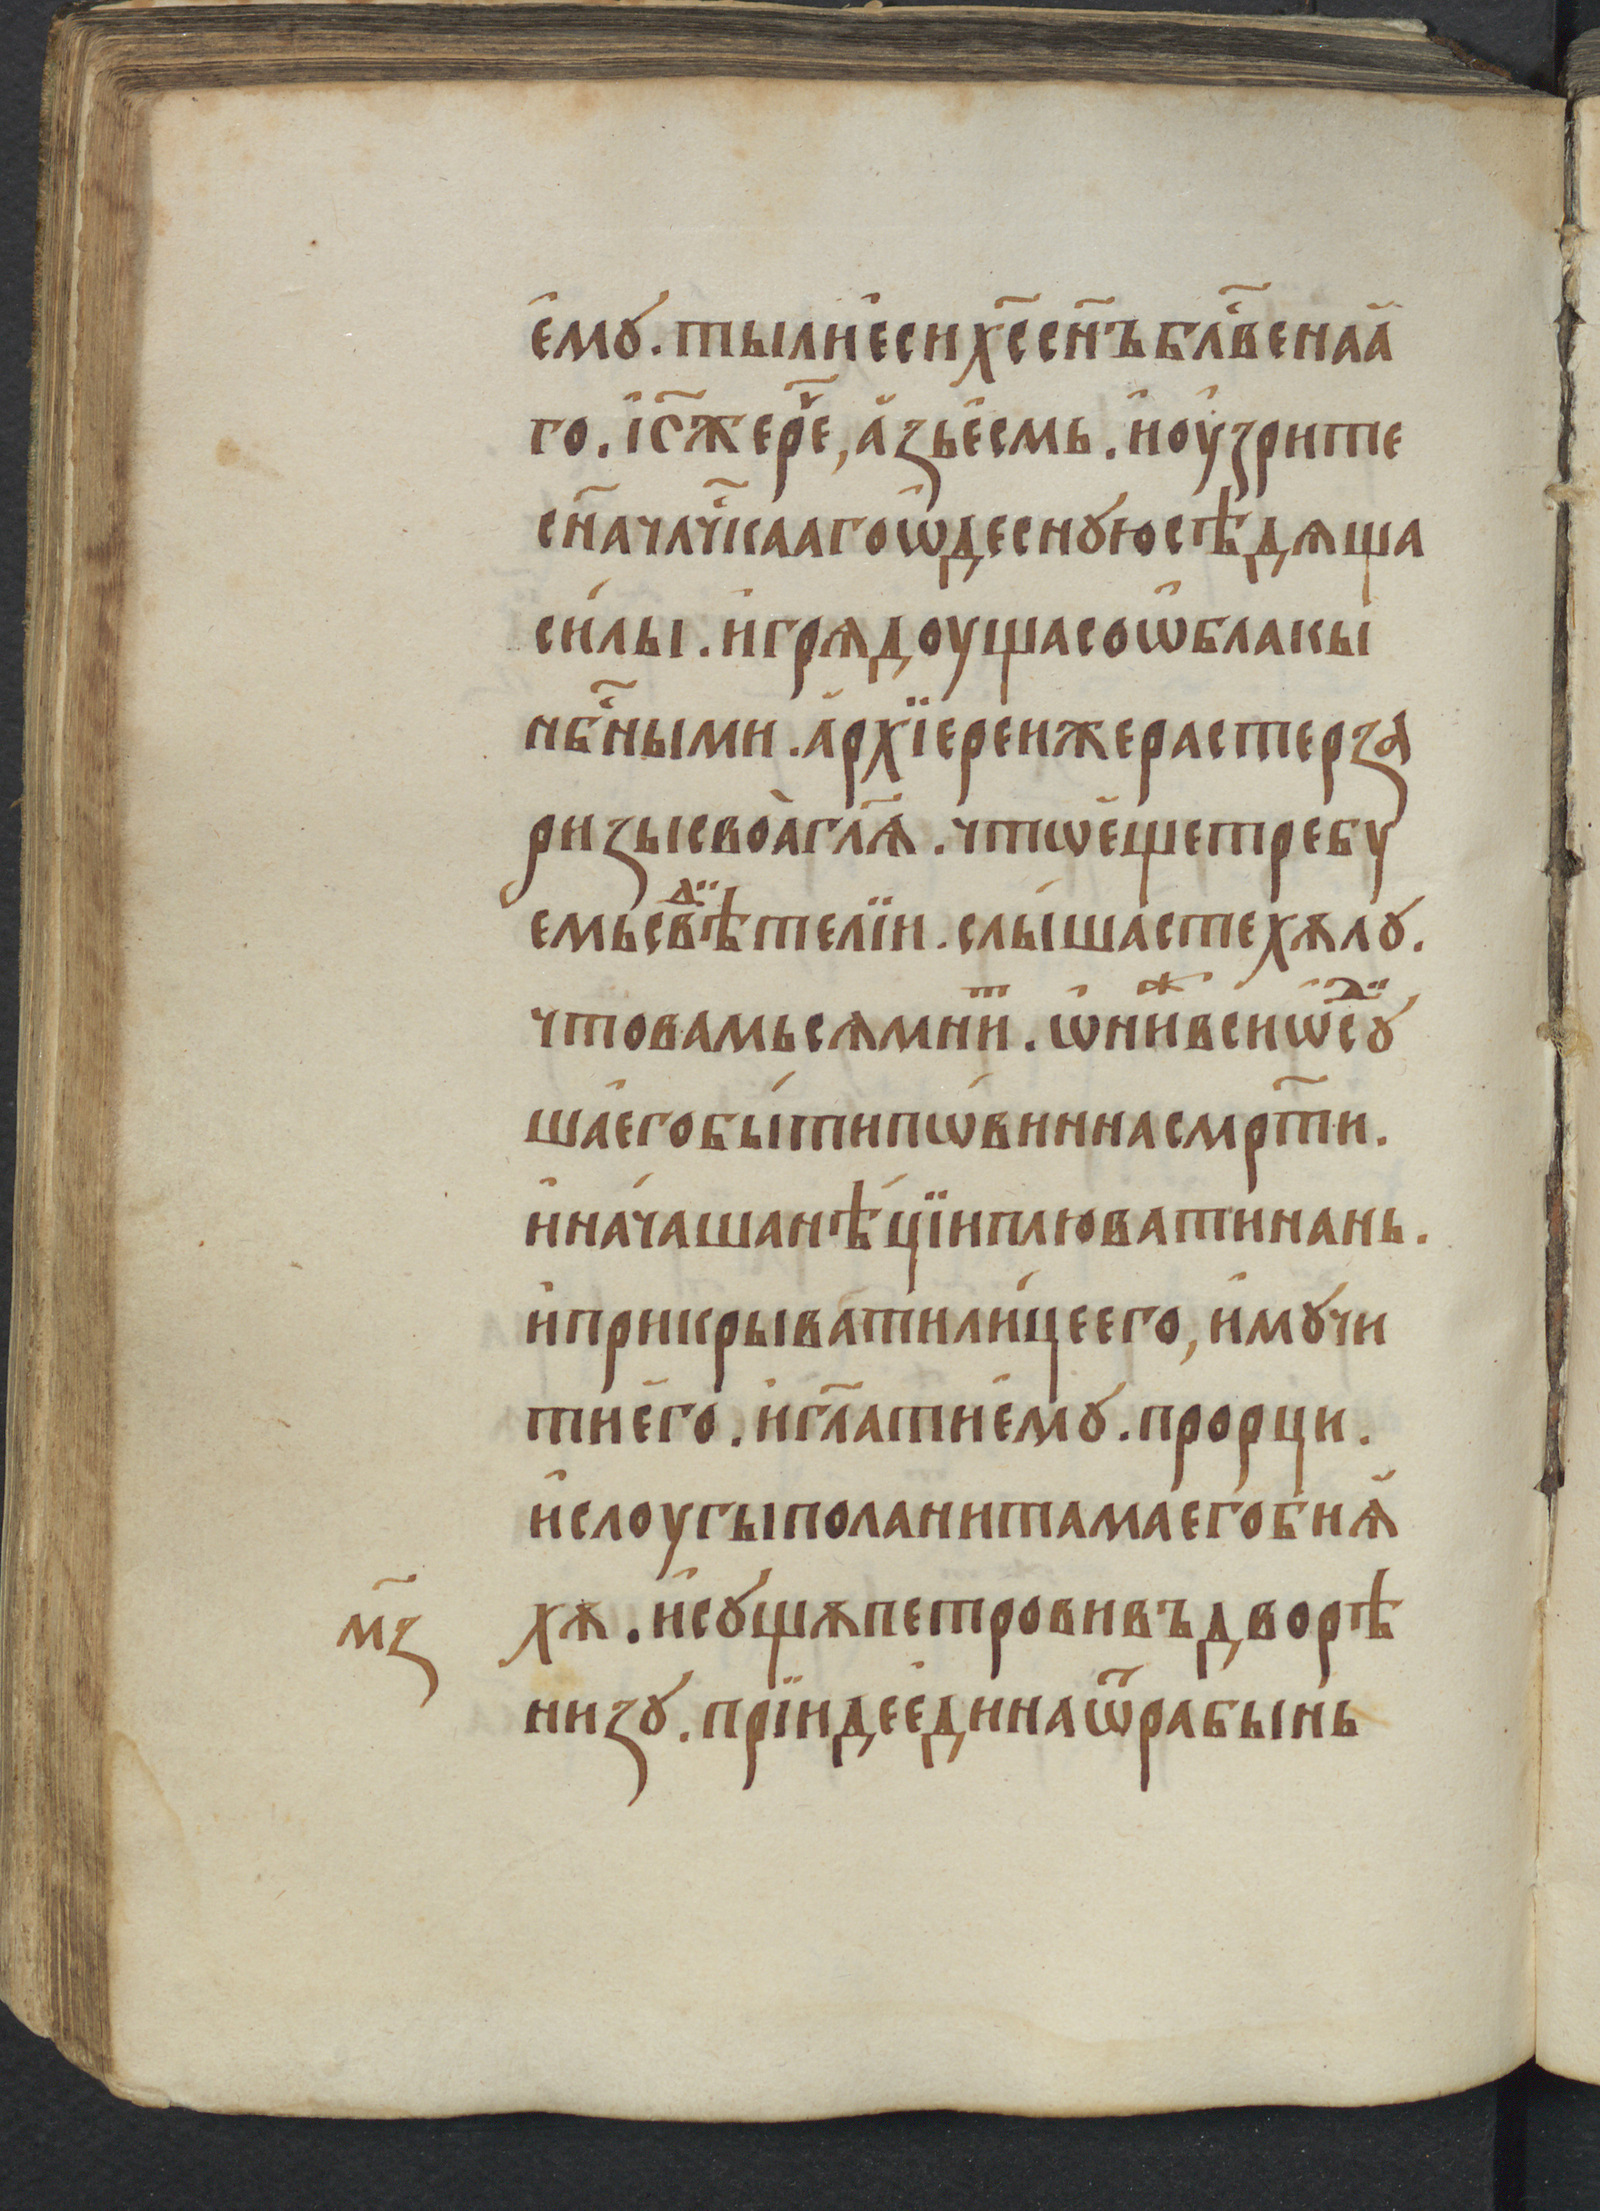 ємꙋ. тылиєсих҃ссн҃ъбл҃ⷭ҇венаа
го. і҆с҃жерⷱ҇е, азьєсмь. иоузрите
сн҃ачл҃ⷱ҇каагоѡдеснꙋюсѣдѧща
силы. игрѧдоущасоѡблакы
нбⷭ҇ными. архїереижерастерза
ризысвоаагл҃ѧ. чтѡещетребꙋ
емьсвⷣѣтелїи. слышастехѫлꙋ.
чтовамьсѧмниⷮ. ѡниⷤвсиѡсꙋⷣ
шаєгобытиповиннасмрт҃и.
иначашанѣцїиплюватинань.
иприкрыватилицеего, имꙋчи
тиєго. игл҃атиємꙋ. прорци.
ислоугыполанитамаегобиѧ
м҃з хѫ. исꙋщѫпетровивъдворѣ
низꙋ. прїидеєдинаѿрабынь